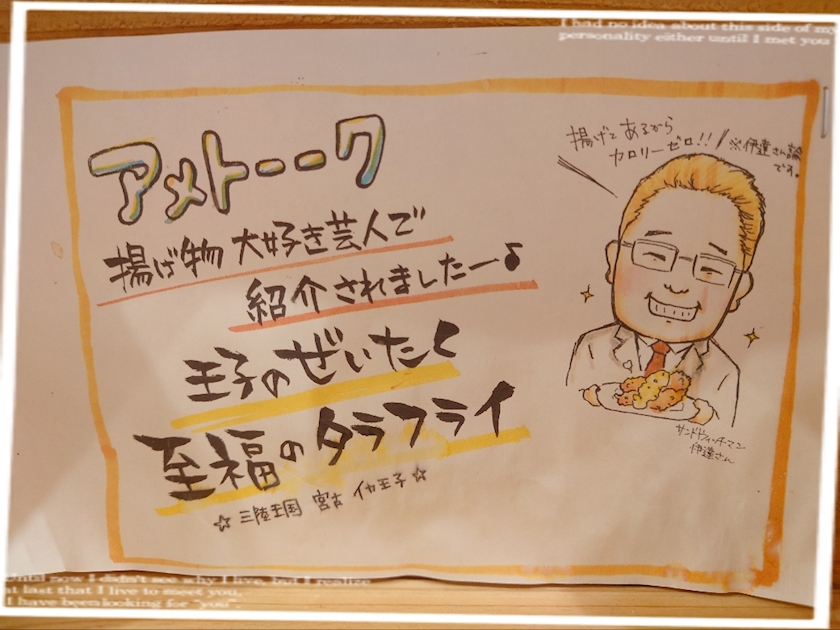 I had no idea about this side of my
personality either until I met you
アメトーーク
揚げ物大好き芸人で
紹介されましたー♪
王子のぜいたく
至福のタラフライ
☆ 三陸王国 宮古 イカ王子 ☆
揚げてあるから
カロリーゼロ!!
※伊達さん論
です。
サンドウィッチマン
伊達さん
Until now I didn't see why I live, but I realize
at last that I live to meet you.
I have been looking for "you".